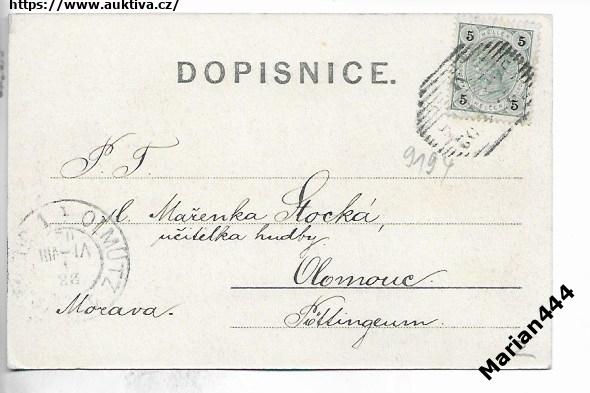 https://www.auktiva.cz/
DOPISNICE.
5 HELLER 5
5 HELLER 5
9194
P. T.
sl. Mařenka Stocká,
učitelka hudby
Olomouc.
Morava.
Pöttingeum.
OLMÜTZ
Marian444